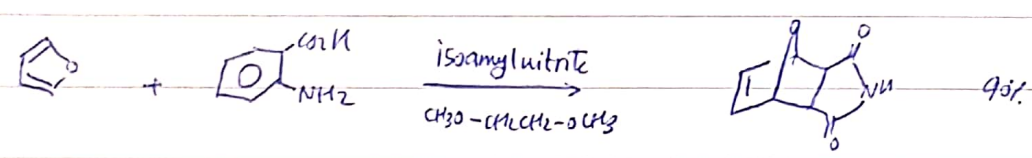 O + CO2H NH2 isoamylnitrite CH3O-CH2CH2-OCH3 O O NH O 90%